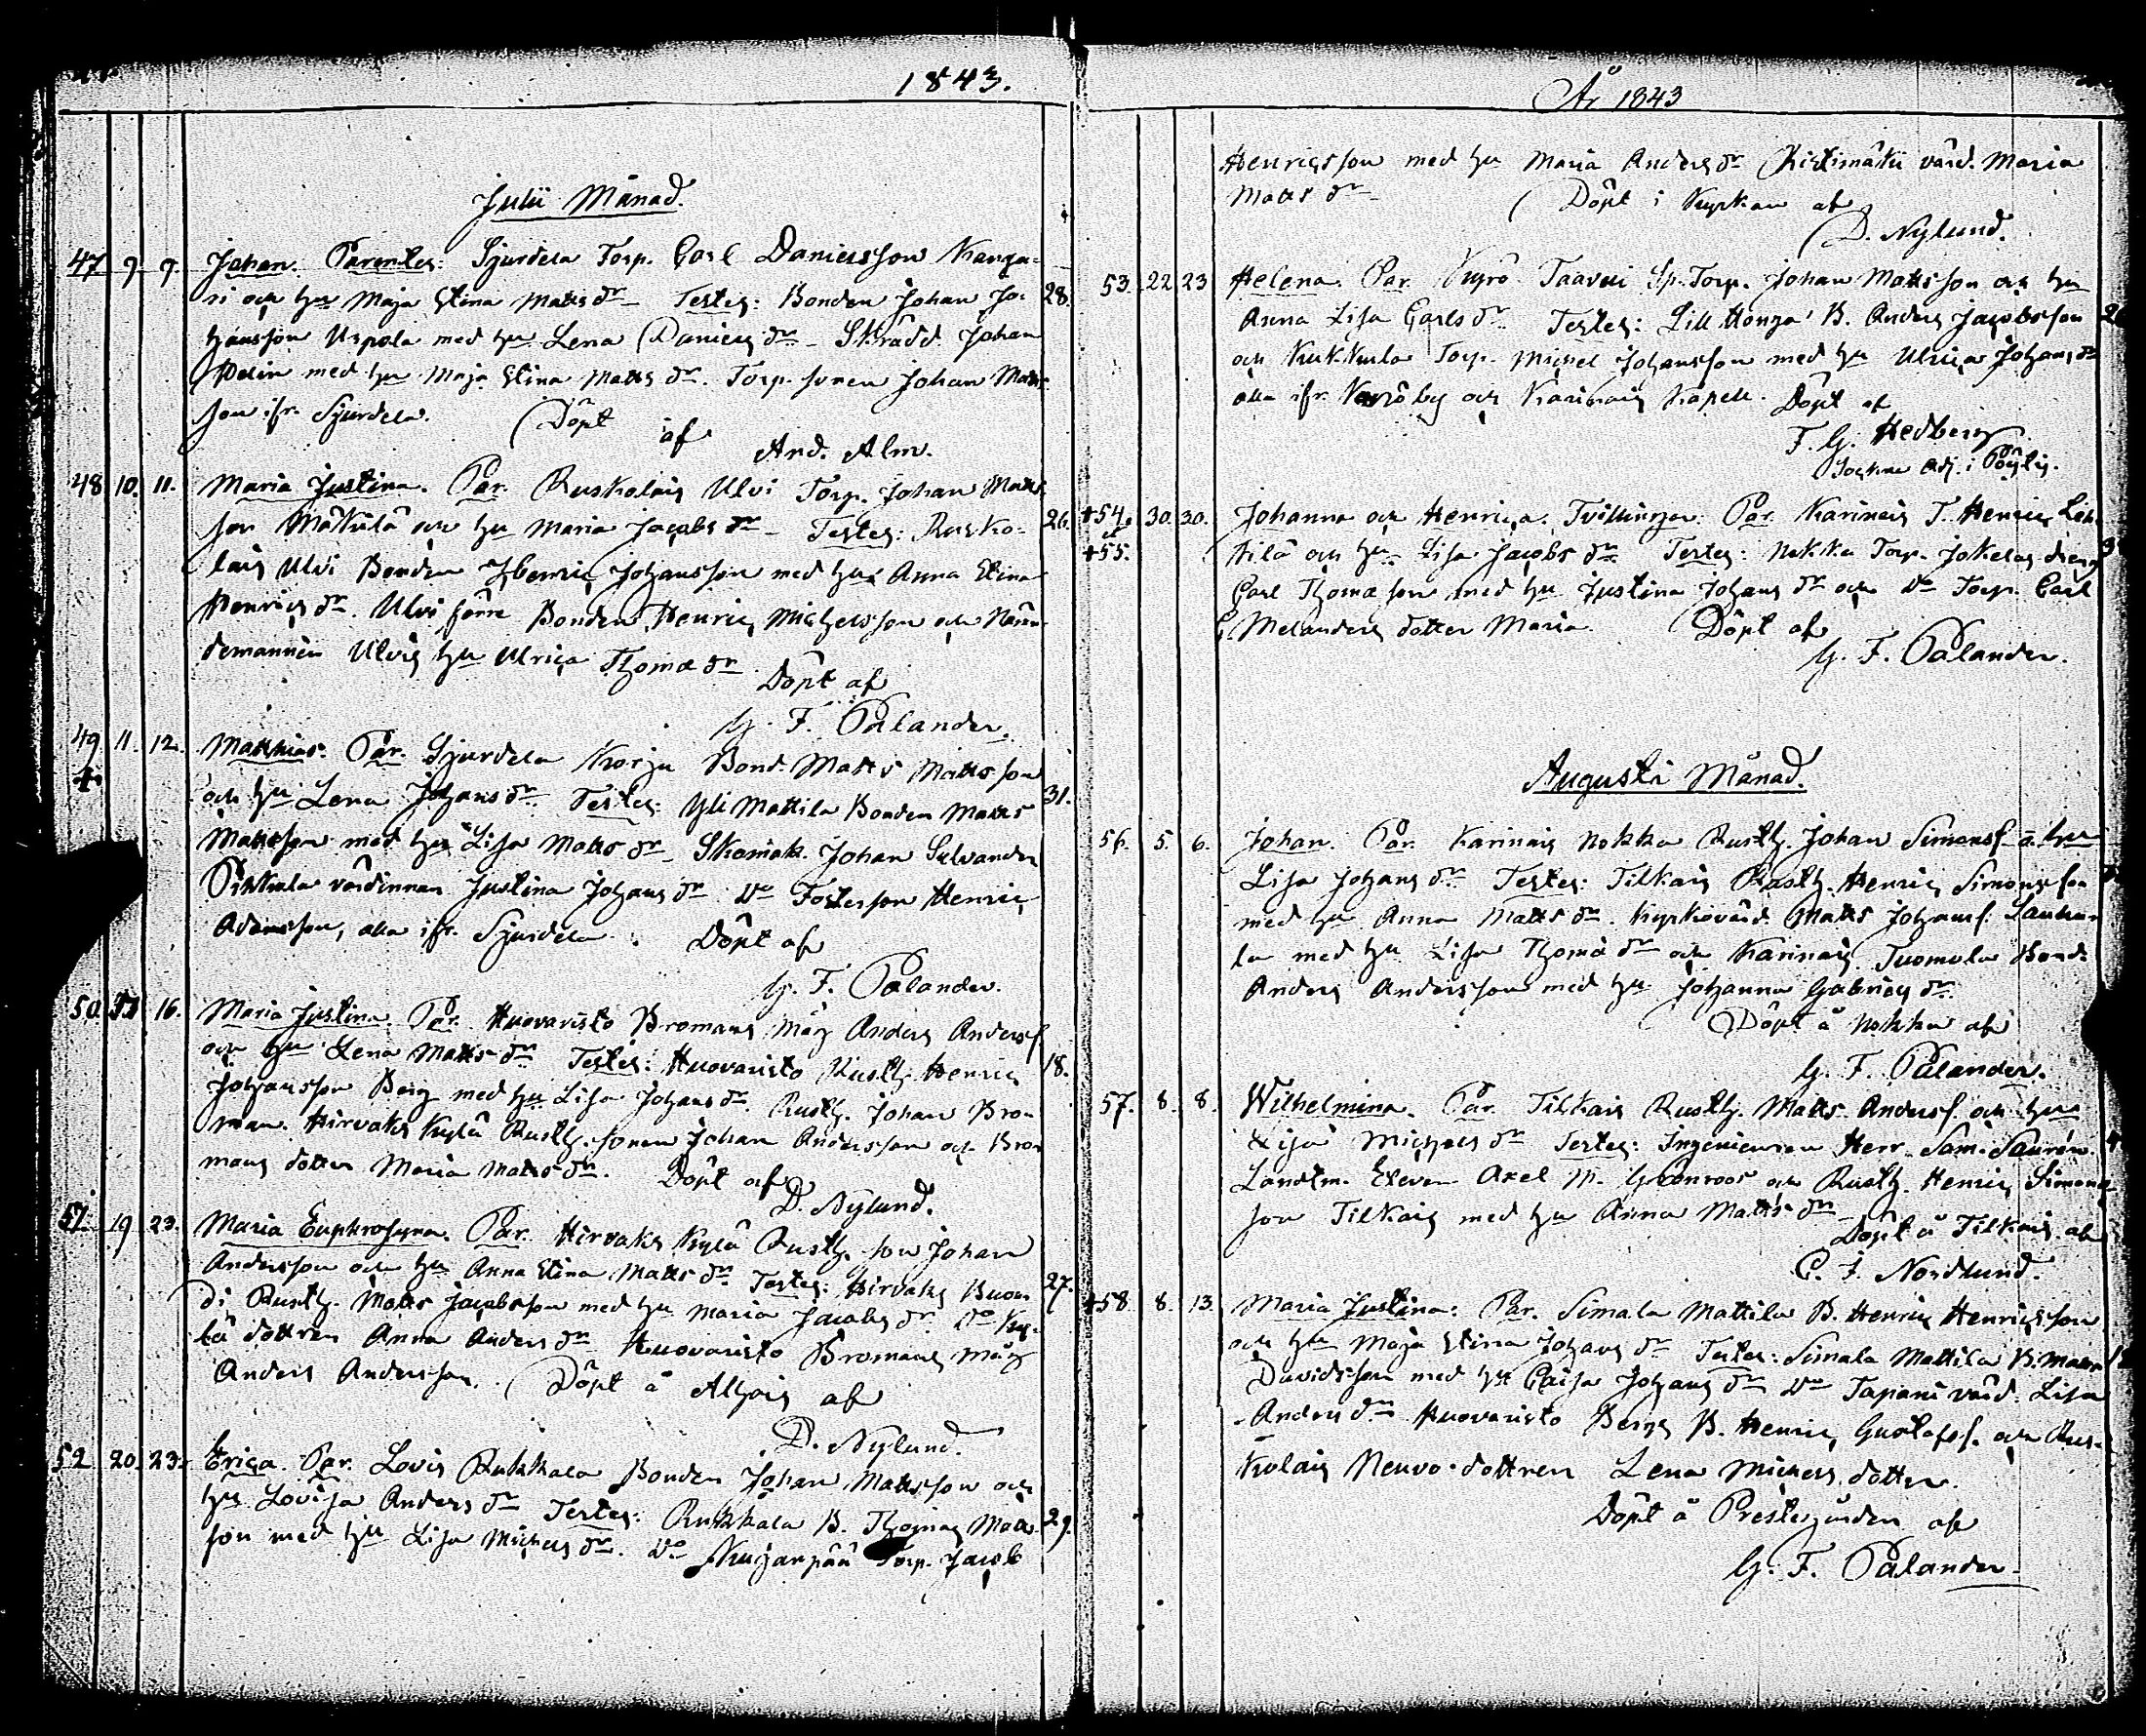 1843.
Julii Månad.
47 9 9. Johan. Parentes: Sjurdela Torp. Carl Danielsson Kanga-
ri och hu Maja Stina Matts dr Testes: Bonden Johan Jo- 28.
hansson Uspola med hu Lena Daniels dr Skrädd. Johan
Pelin med hu Maja Stina Matts dr. Torp. sonen Johan Matts
son ifr. Sjurdela. Döpt af
And. Alm.
48 10. 11. Maria Justina. Par. Ruskolais Ulvi Torp. Johan Matts
son Mäkilä och hu Maria Jacobs dr Testes: Rusko- 26.
lais Ulvi Bonden Henric Johansson med hu Anna Stina
Henrics dr. Ulvi förre Bonden Henric Michelsson och Nämn-
demannen Ulvis hu Ulrica Thomæ dr
Döpt af
G. F. Palander.
49 11. 12. Matthias. Par. Sjurdela Korju Bond. Matts Mattsson
+ och hu Lena Johans dr. Testes: Yli Mattila Bonden Matts 31.
Mattsson med hu Lisa Matts dr Skomak. Johan Sulvander
Pirkkala värdinnan Justina Johans dr Do Fosterson Henric
Adamsson, alla ifr. Sjurdela. Döpt af
G. F. Palander.
50. 16. Maria Justina. Par. Huovaristo Bromans måg Anders Andersf.
och hu Lena Matts dr Testes: Huovaristo Rusth. Henric 18.
Johansson Berg med hu Lisa Johans dr. Rusth. Johan Bro-
man. Hirvaks Kylä Rusth. sonen Johan Andersson och Bro-
mans dotter Maria Matts dr. Döpt af
D. Nylund.
51. 19 23. Maria Euphrosyna. Par. Hirvaks Kylä Rusth. son Johan
Andersson och hu Anna Stina Matts dr. Testes: Hirvaks 27.
di Rusth. Matts Jacobsson med hu Maria Jacobs dr. Do Ky-
lä dottren Anna Anders dr Huovaristo Bromans måg
Anders Andersson. Döpt å Alhais af
D. Nylund.
52 20. 23. Erica. Par. Lovis Rukkala Bonden Johan Mattsson och
hu Lovisa Anders dr Testes: Rukkala B. Thomas Matts- 29.
son med hu Lisa Michels dr. Do Kujanpää Torp. Jacob
År 1843
Henricsson med hu Maria Anders dr Ristimäki värd. Maria
Matts dr (Döpt i Kyrkan af
D. Nylund.
53. 22 23 Helena. Par. Kyrö Taavui Sp. Torp. Johan Mattsson och hu
Anna Lisa Carls dr Testes: Lill Honga B. Anders Jacobsson
och Kukkula Torp. Michel Johansson med hu Ulrica Johans dr
alla ifr. Kyröby och Karinais Kapell. Döpt af
F. G. Hedberg
Sockne Adj. i Pöytis.
+54. 30. 30. Johanna och Henrica. Tvillingar. Par. Karinais T. Henric
+55. tilä och hu Lisa Jacobs dr Testes: Nokka Torp. Jokelas dreng
Carl Thomæson med hu Justina Johans dr och Do Torp. Carl
Melanders dotter Maria. Döpt af
G. F. Palander.
Augusti Månad.
56. 5. 6. Johan. Par. Karinais Nokka Rusth. Johan Simonsf. o. hu
Lisa Johans dr Testes: Tilkais Rusth. Henric Simonsson
med hu Anna Matts dr. Kyrkovärd. Matts Johansf. Laukka-
la med hu Lisa Thomæ dr och Karinais Tuomola Bond.
Anders Andersson med hu Johanna Gabriels dr
Döpt å Nokka af
G. F. Palander.
57. 8. 8. Wilhelmina. Par. Tilkais Rusth. Matts Andersf. och hu
Lisa Michels dr Testes: Ingenieuren Herr Sam. Saurén.
Landtm. Eleven Axel M. Grönroos och Rusth. Henric Simons-
son Tilkais med hu Anna Matts dr
Döpt å Tilkais af
C. J. Nordlund.
+58. 8. 13. Maria Justina. Par. Simala Mattila B. Henric Henricsson
och hu Maja Stina Johans dr Testes: Simala Mattila B. Matts
Davidsson med hu Caisa Johans dr Do Tapani värd. Lisa
Anders dr Huovaristo Bergs B. Henric Gustafsf. och Rus-
kolais Neuvo-dottren Lena Michels dotter.
Döpt å Prestegården af
G. F. Palander.